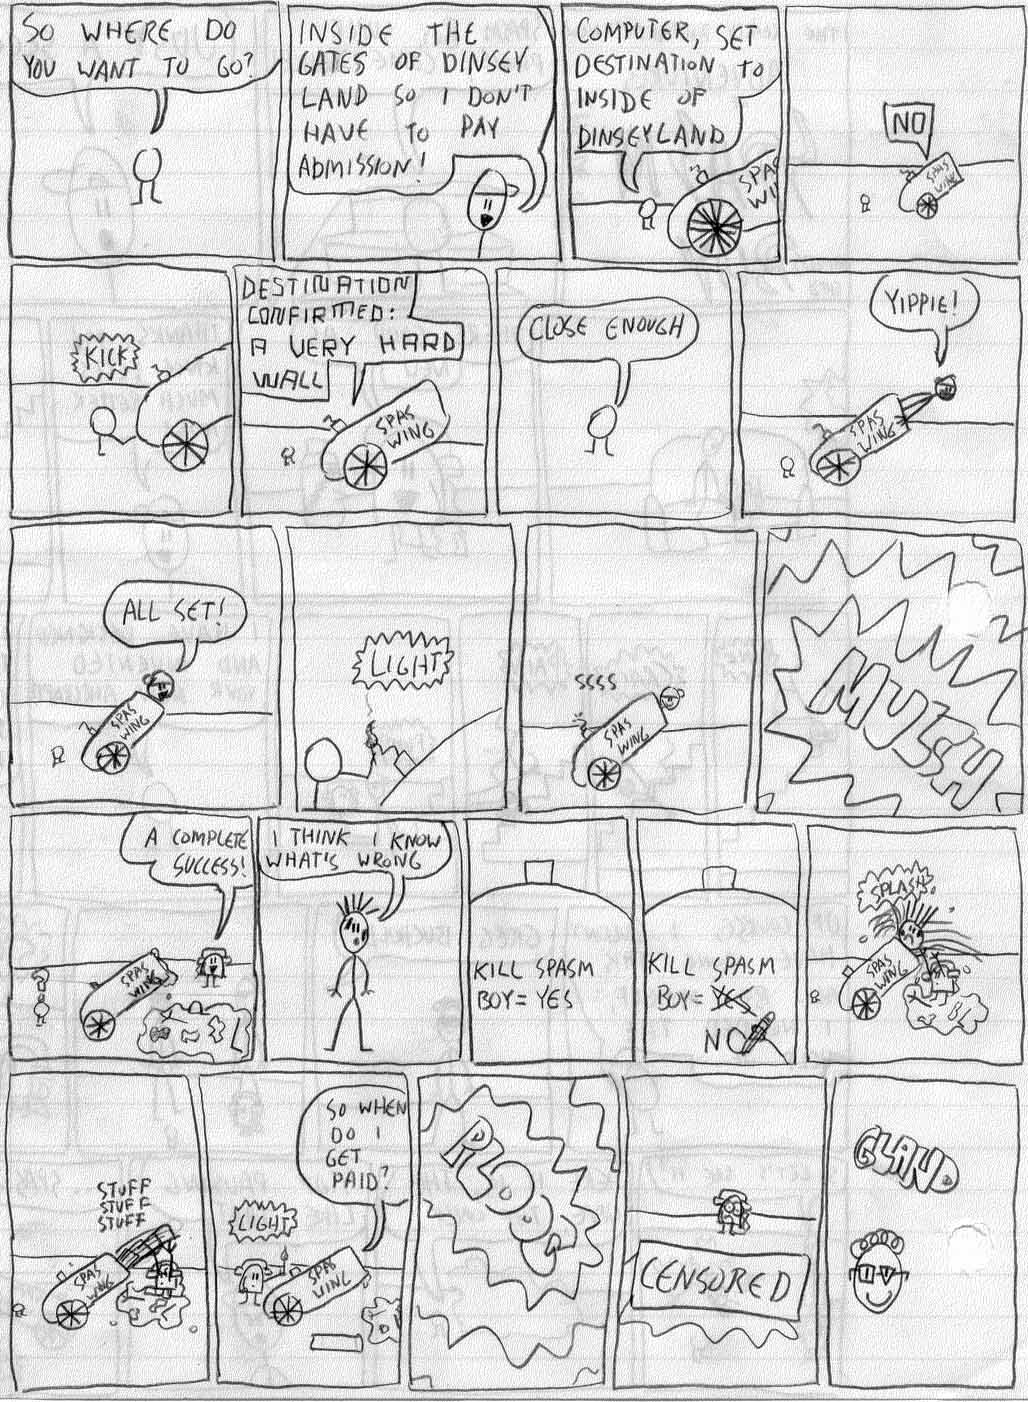 SO WHERE DO
YOU WANT TO GO?
INSIDE THE
GATES OF DINSEY
LAND SO I DON'T
HAVE TO PAY
ADMISSION!
COMPUTER, SET
DESTINATION TO
INSIDE OF
DINSEYLAND
SPAS
WI
NO
SPAS
WING
KICK
DESTINATION
CONFIRMED:
A VERY HARD
WALL
SPAS
WING
CLOSE ENOUGH
YIPPIE!
SPAS
WING
ALL SET!
SPAS
WING
LIGHT
SSSS
SPAS
WING
MULSH
A COMPLETE
SUCCESS!
SPAS
WING
I THINK I KNOW
WHAT'S WRONG
KILL SPASM
BOY= YES
KILL SPASM
BOY= YES
NO
SPLASH
SPAS
WING
STUFF
STUFF
STUFF
SPAS
WING
SO WHEN
DO I
GET
PAID?
LIGHT
SPAS
WING
PLOOP
CENSORED
GLAND